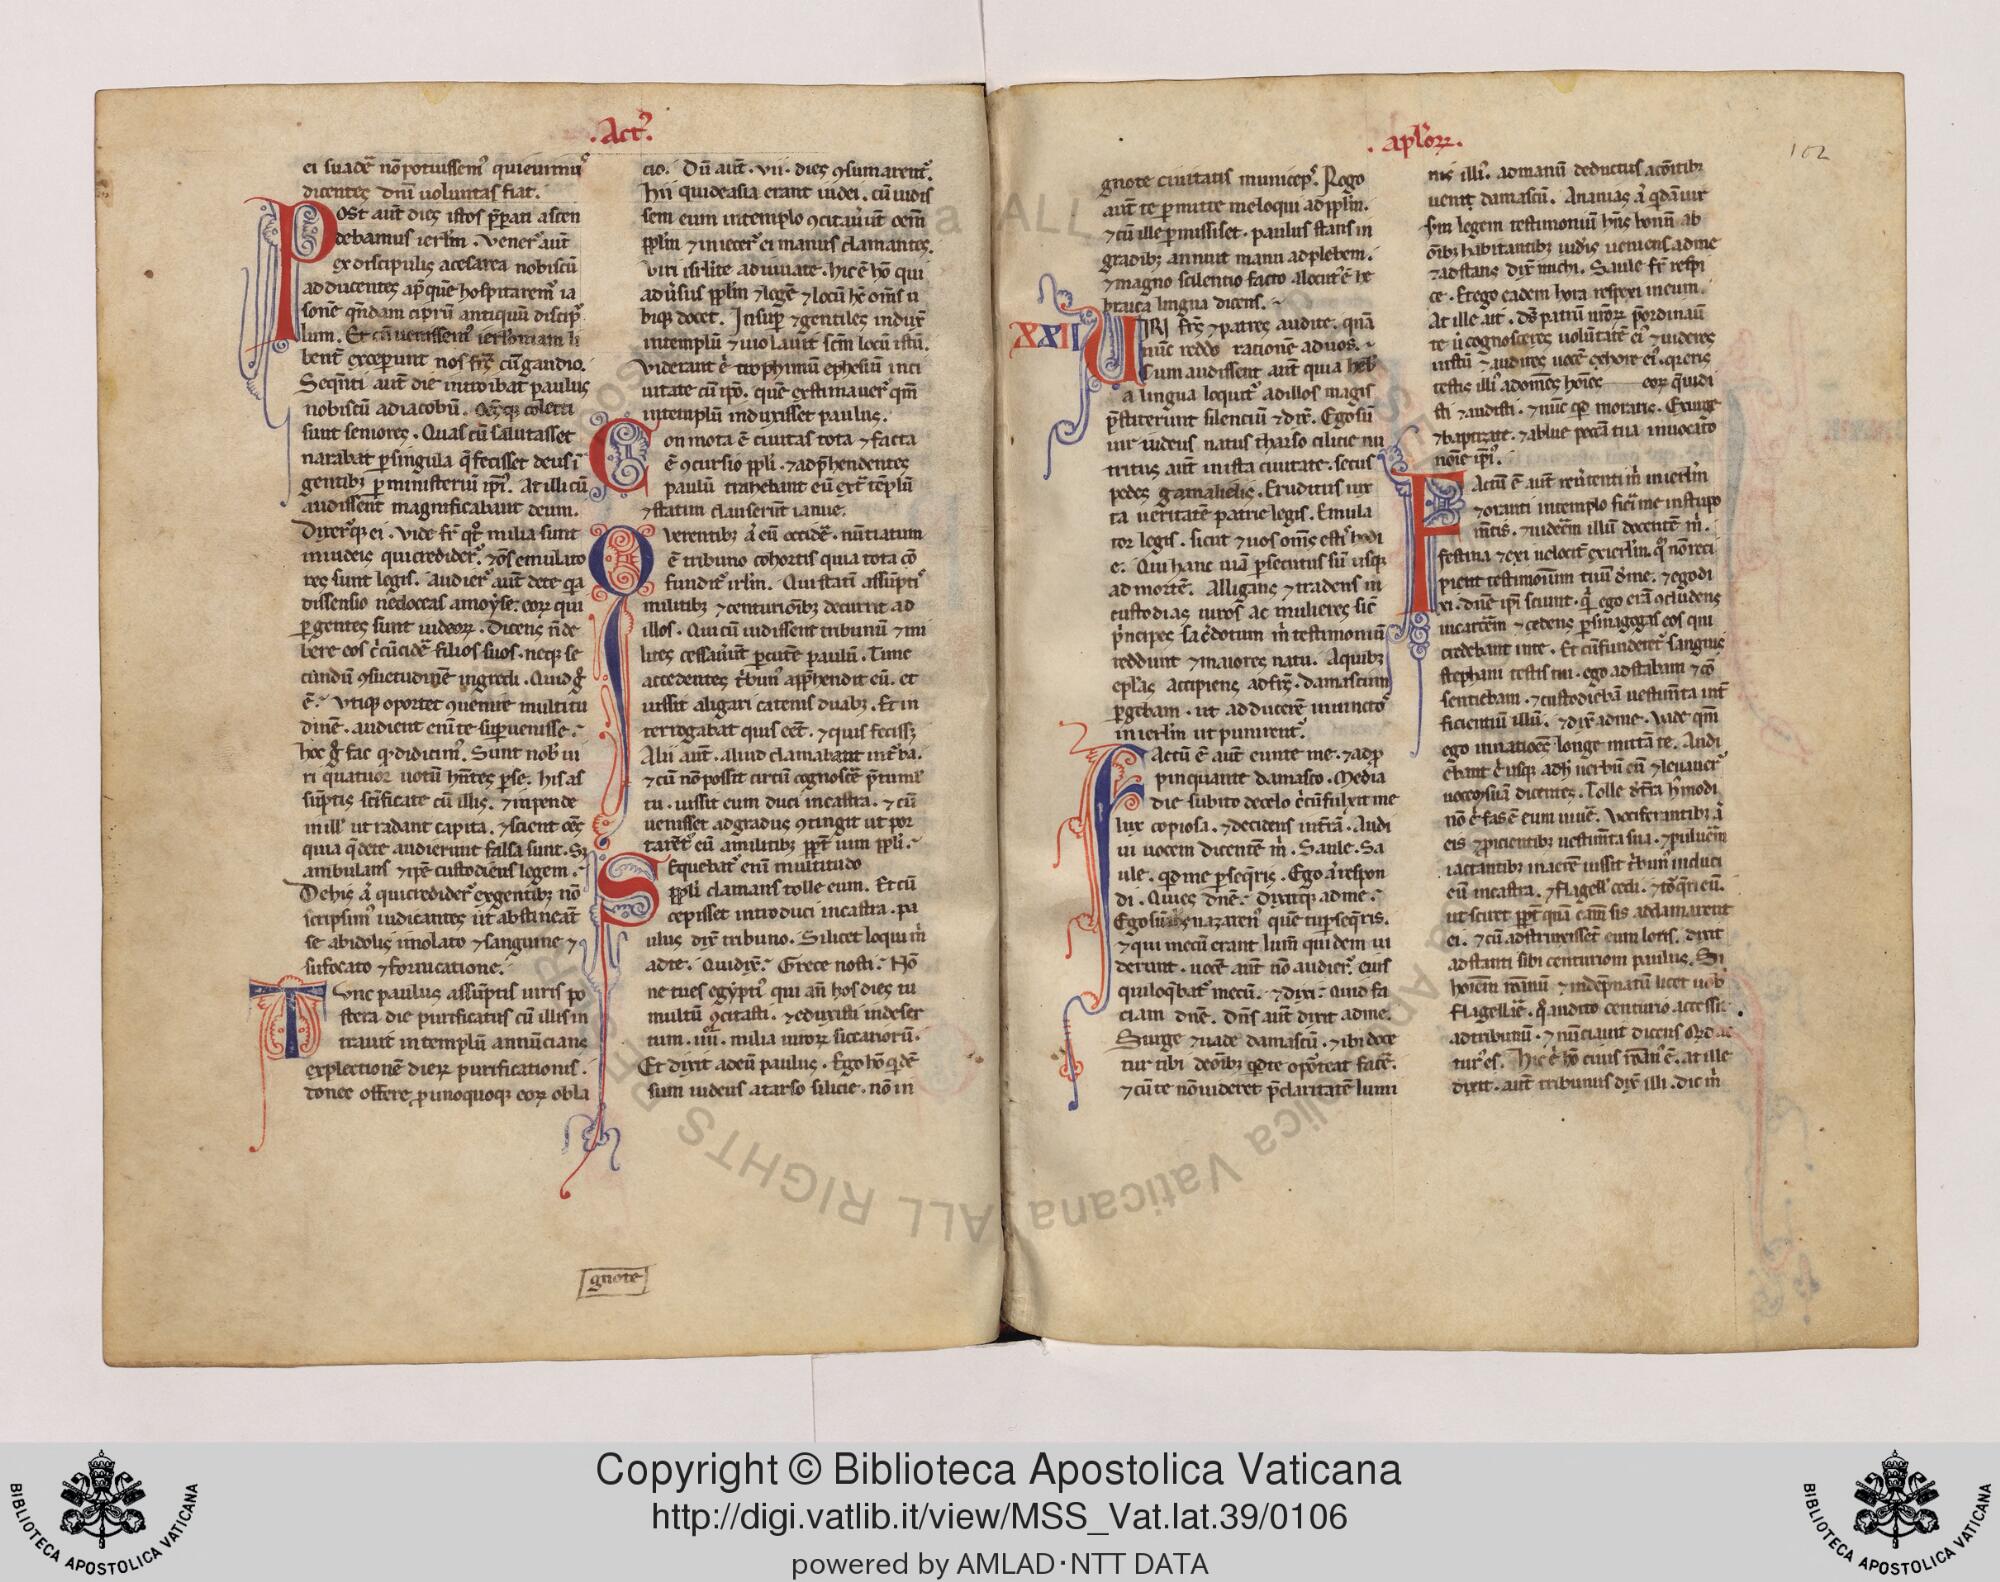 .Act᷒.
ei suadē nō potuissem᷒ quieuimus᷒
dicentes dn̄i uoluntas fiat.
Post aut̄ dies istos p̄parati ascen
debamus ierl̄m. Vener᷒ aut̄
ex discipulis acesarea nobiscū
adducentes ap̄ quē hospitarem᷒ ia
sonē qn̄dam ciprū antiquū discip̄
lum. Et cū uenissem᷒ ierl̄imam li
bent̄ exceperunt nos fr̄s cū gaudio.
Seqn̄ti aut̄ die introibat paulus
nobiscū ad iacobū.
sunt seniores. Quas cū salutasset
narabat ꝑ singula q̄ fecisset deus ī
gentibꝫ ꝑ ministeriū ip̄i. At illi cū
audissent magnificabant deum.
Dixer᷒qꝫ ei. Vide fr̄ qͦt milia sunt
in iudeis qui credider᷒. ⁊ oēs emulato
res sunt legis. Audier᷒ aut̄ de te qa
dissensio nē doceas a moyse. eoꝝ qui
ꝑ gentes sunt iudeoꝝ. Dicens n̄ de
bere eos c̄cūcidē filios suos. neqꝫ se
cundū ꝯsuetudinē ingredi. Quid ḡ
ē. Vtiqꝫ oportet ꝯuenire multitu
dinē. audient eni te sup̄uenisse.
hoc ḡ fac qͩ dicim᷒. Sunt nob̄ ui
ri quatuor uotū hn̄tes ꝑ se. his as
sūptis scīficate cū illis. ⁊ inpende
in ill᷒ ut radant capita. ⁊ scient oēs
quia q̄ de te audierunt falsa sunt. Sꝫ
ambulans ⁊ ip̄e custodiens legem.
De his a᷒ qui credider᷒ ex gentibꝫ nō
scripsim᷒ iudicantes ut abstineāt
se ab idolis imolato ⁊ sanguine ⁊
sufocato ⁊ fornicatione.
Tunc paulus assūptis uiris po
stera die purificatus cū illis in
trauit in templū annūcians
expletionē dieꝝ purificationis.
donec offerē ꝓ unoquoqꝫ eoꝝ obla
cio. Dū aut̄. vii. dies ꝯsumarent᷒.
Hii qui de asia erant iudei. cū uidis
sem eum in templo ꝯcitauer̄ut oēm
ppl̄m ⁊ iniecer᷒ ei manus clamantes.
Viri isrl̄ite adiuuate. hic ē hō qui
aduersus ppl̄m ⁊ legē ⁊ locū hc̄ om̄s u
biqꝫ docet. Insup̄ ⁊ gentiles induxͭ
in templū ⁊ uiolauit scm̄ locū istū.
Viderant e᷒ trophimū ephesiū in ci
uitate cū ip̄o. quē extimauer᷒ qm̄
in templū induxisset paulus.
Conmota ē ciuitas tota ⁊ facta
ē ꝯcursio ppl̄i. ⁊ adp̄hendentes
paulū trahebant eū extͣ tēplū
⁊ statim clauserūt ianue.
Querentibꝫ a᷒ eū occidē. nūtiatum
ē tribuno cohortis quia tota cō
fundit᷒ irl̄m. Qui statī assūpti᷒
militibꝫ ⁊ centurioībꝫ decurrit ad
illos. Qui cū uidissent tribunū ⁊ mi
lites cessauer̄ut ꝑcutē paulū. Tunc
accedentes tͥbun᷒ apphendit eū. et
iussit aligari catenis duabꝫ. Et in
terrogabat quis eēt. ⁊ quis fecissꝫ
Alii aut̄. aliud clamabant int̄ ba.
⁊ cū nō possit certū cognoscē p̄ tuml᷒
tu. iussit eum duci in castra. ⁊ cū
uenisset ad gradus ꝯtingit ut por
taret᷒ eū a militibꝫ ppt̄ uim ppl̄i.
Sequebat᷒ eni multitudo
ppl̄i clamans tolle eum. Et cū
cepisset introduci in castra. pa
ulus dix̄ tribuno. Si licet loqui m̄
ad te. Qui dix̄. Grece nosti. Nō
ne tu es egypti᷒ qui an̄ hos dies tu
multū ꝯcitasti. ⁊ eduxisti in deser
tum. iiii. milia uiroꝝ siccarioꝝ.
Et dixit ad eū paulus. Ego hō qͥdē
sum iudeus a tarso silicie. nō in
gnote
apl̄oꝝ.
102
gnote ciuitatis municep᷒. Rogo
aut̄ te ꝑmitte me loqui ad ppl̄m.
⁊ cū ille ꝑmisisset. paulus stans in
gradibꝫ annuit manu ad plebem.
⁊ magno scilentio facto alocut᷒ ē he
braica lingua dicens.
XXII
Uiri fr̄s ⁊ patres audite. qnā
nūc reddo rationē ad uos.
Cum audissent aut̄ quia heb̄
a lingua loquit᷒ ad illos magis
p̄stiterunt silenciū ⁊ dix̄. Ego sū
uir iudeus natus tharso cilicie nu
tritus aut̄ in ista ciuitate. secus
pedes gamalielis. Eruditus iux
ta ueritatē patrie legis. Emula
tor legis. sicut ⁊ uos om̄s estis hodi
e. Qui hanc uiā ꝑsecutus sū usqꝫ
ad mortē. Alligans ⁊ tradens in
custodias uiros ac mulieres sic̄
p̄ncipes sac̄dotum m̄ testimoniū
reddunt ⁊ maiores natu. A quibꝫ
epl̄as accipiens ad fr̄s. damascum
ꝑgebam. ut adducerē inuincto᷒
in ierl̄m ut punirent᷒.
Factū ē aut̄ eunte me. ⁊ adp̄
pinquante damasco. Media
die subito de celo c̄cūfulxit me
lux copiosa. ⁊ decidens in tr̄ā. Audi
ui uocem dicentē m̄. Saule. Sa
ule. qͩ me ꝑseqͥris. Ego a᷒ respon
di. Quies dn̄e. Dixitqꝫ ad me.
Ego sū ih̄s nazaren᷒ quē tu ꝑseqͥris.
⁊ qui mecū erant lum̄ quidem ui
derunt. uocē aut̄ nō audier᷒. eius
qui loqͤbat᷒ mecū. ⁊ dixi. Quid fa
ciam dn̄e. Dn̄s aut̄ dixit ad me.
Surge ⁊ uade damascū. ⁊ ibi dice
tur tibi de oībꝫ q̄ te oporteat facē.
⁊ cū te nō uideret p̄ claritatē lumi
nis illi᷒. ad manū deductus a comitibꝫ
ueni damascū. Ananias a᷒ qͥdā uir
scd̄m legem testimoniū hn̄s bonū ab
oībꝫ habitantibꝫ iudeis ueniens ad me
⁊ adstans dix̄ michi. Saule fr̄ respi
ce. Et ego eadem hora respexi in eum.
At ille ait. Ds̄ patrū nr̄oꝝ p̄ordinauit
te ut cognosceres uolūtatē ei᷒ ⁊ uideres
iustū ⁊ audires uocē ex hore ei᷒. qͥ eris
testis illi᷒ ad omēs hoīes eoꝝ q̄ uidi
sti ⁊ audisti. ⁊ nūc qͥd moraris. Exurge
⁊ baptizate. ⁊ ablue pecc̄a tua inuocato
noīe ip̄i᷒.
Factū ē aut̄ reūtenti m̄ in ierl̄m
⁊ oranti in templo fieri me in stupo
m̄tis. ⁊ uiderēm illū dicentē m̄.
festina ⁊ exi uelocit̄ ex ierl̄m. qͦ nō reci
pient testimonium tuū de me. ⁊ ego di
xi. dn̄e ip̄i sciunt. qͥ ego erā ꝯcludens
in carcēm ⁊ cedens ꝑ sinagogas eos qui
credebant in te. Et cū funderet᷒ sanguis
stephani testis tui. ego adstabam ⁊ cō
sentiebam. ⁊ custodiebā uestimn̄ta int̄
ficientiū illū. ⁊ dix̄ ad me. Vade qm̄
ego in natiocēs longe mittā te. Audi
ebant e᷒ usqꝫ ad h̄ uerbū eū ⁊ leuauer᷒
uocem suā dicentes. Tolle de tr̄a h᷒modi
nō e᷒ fas ē eum uiuē. Vociferantibꝫ a᷒
eis ⁊ ꝓicientibꝫ uestimn̄ta sua. ⁊ puluēm
iactantibꝫ in aerē iussit tͥbun᷒ induci
eū in castra. ⁊ flagell᷒ cedi. ⁊ tōqͥri eū.
ut sciret ppt̄ quā cām̄ sic adclamarent
ei. ⁊ cū adstrinxissent eum loris. dixit
adstanti sibi centurioni paulus. Si
hoīem romānū ⁊ indēpnatū licet uob̄
flagellarē. qͦ audito centurio accessit
ad tribunū. ⁊ nūciauit dicens
tur᷒ es. Hic e᷒ hō ciuis romān᷒ ē. at ille
dixit. aut̄ tribunus dix̄ illi. dic m̄
Copyright © Biblioteca Apostolica Vaticana
http://digi.vatlib.it/view/MSS_Vat.lat.39/0106
powered by AMLAD·NTT DATA
BIBLIOTECA APOSTOLICA VATICANA
BIBLIOTECA APOSTOLICA VATICANA